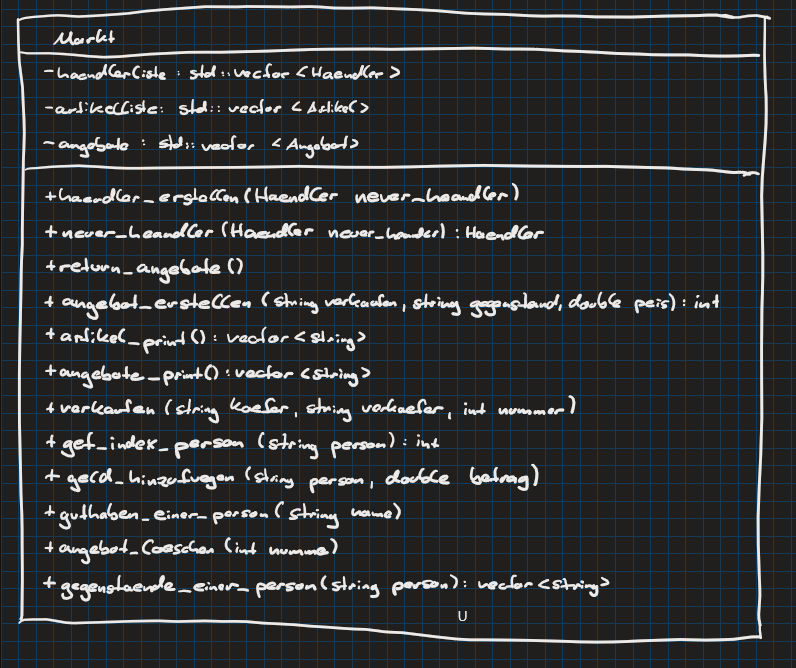 Markt
-haendlerliste : std::vector <Haendler>
-artikelliste: std:: vector <Artikel>
-angebote : std:: vector <Angebot>
+haendler_erstellen(Haendler neuer_haendler)
+neuer_haendler (Haendler neuer_haendler) : Haendler
+return_angebote()
+ angebot_erstellen (string verkaufen, string gegenstand, double peis) : int
+artikel_print() : vector<string>
+angebote_print() : vector <string>
+ verkaufen (string kaefer, string verkaefer, int nummer)
+ get_index_person (string person) : int
+ geld_hinzufuegen (string person, double betrag)
+ guthaben_einer_person (string name)
+ angebot_loeschen (int numme)
+ gegenstaende_einer_person(string person): vector<string>
U